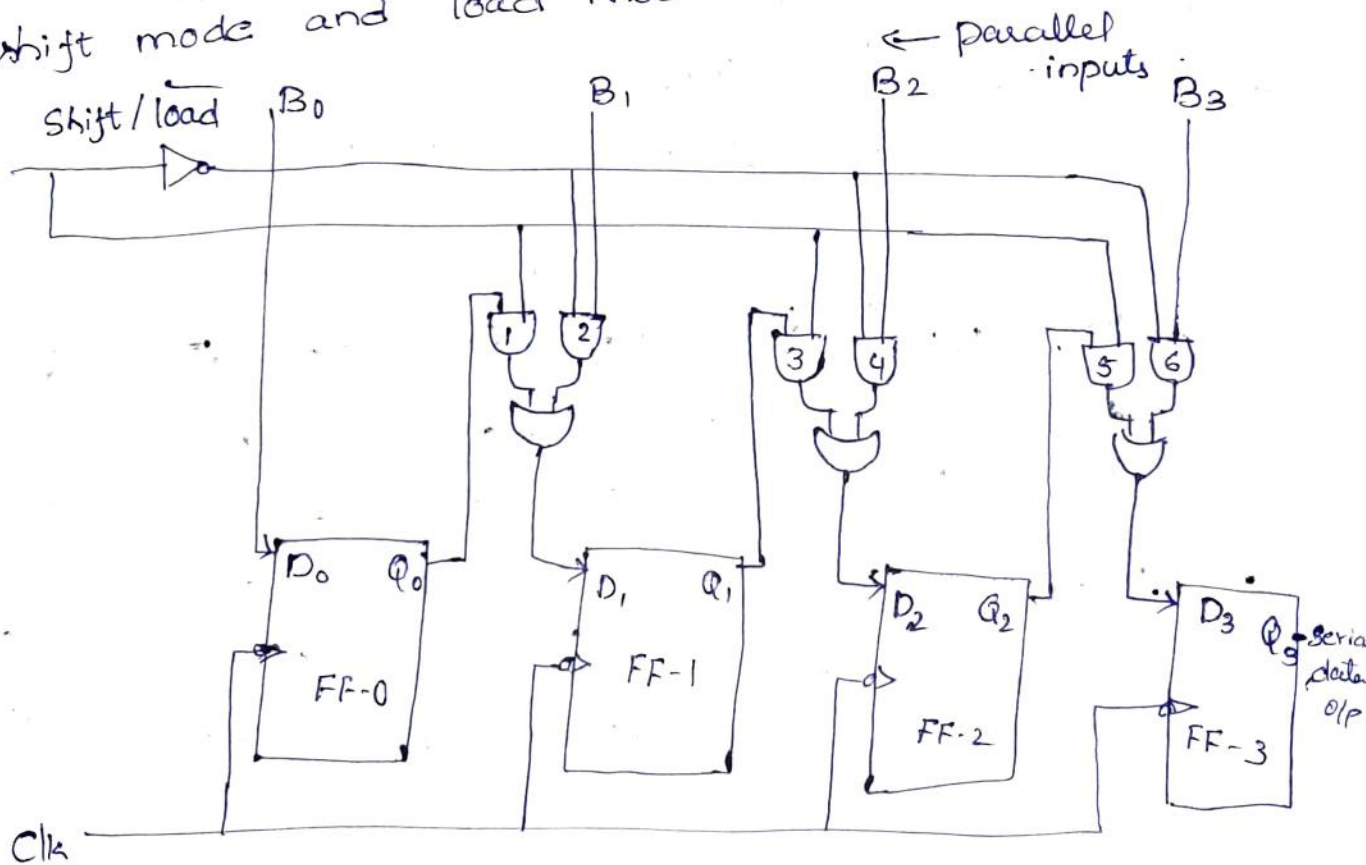 shift mode and load
← parallel
inputs
Shift/load B0 B1 B2 B3
1 2 3 4 5 6
D0 Q0 D1 Q1 D2 Q2 D3 Q3
FF-0 FF-1 FF-2 FF-3
data
o/p
Clk